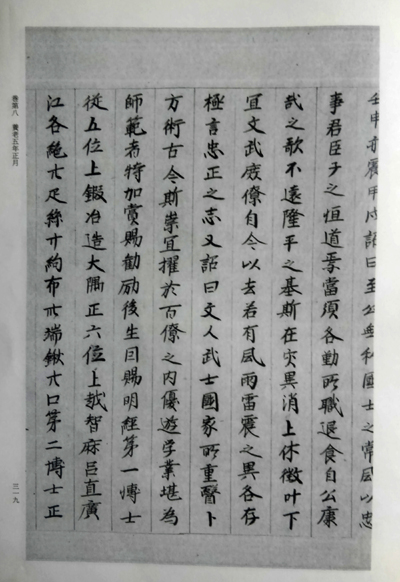 壬申亦震甲戌詔曰至公無私國士之常風以忠
事君臣子之恒道焉當須各勤所職退食自公康
哉之歌不遠隆平之基斯在灾異消上休徴叶下
宜文武庶僚自今以去若有風雨雷震之異各存
極言忠正之志又詔曰文人武士國家所重醫卜
方術古今斯崇宜擢於百僚之内優遊学業堪為
師範者特加賞賜勸励後生因賜明経第一博士
從五位上鍛冶造大隅正六位上越智麻呂直廣
江各絁廿疋絲廿絇布卅端鍬廿口第二博士正
卷第八　養老五年正月
三一九